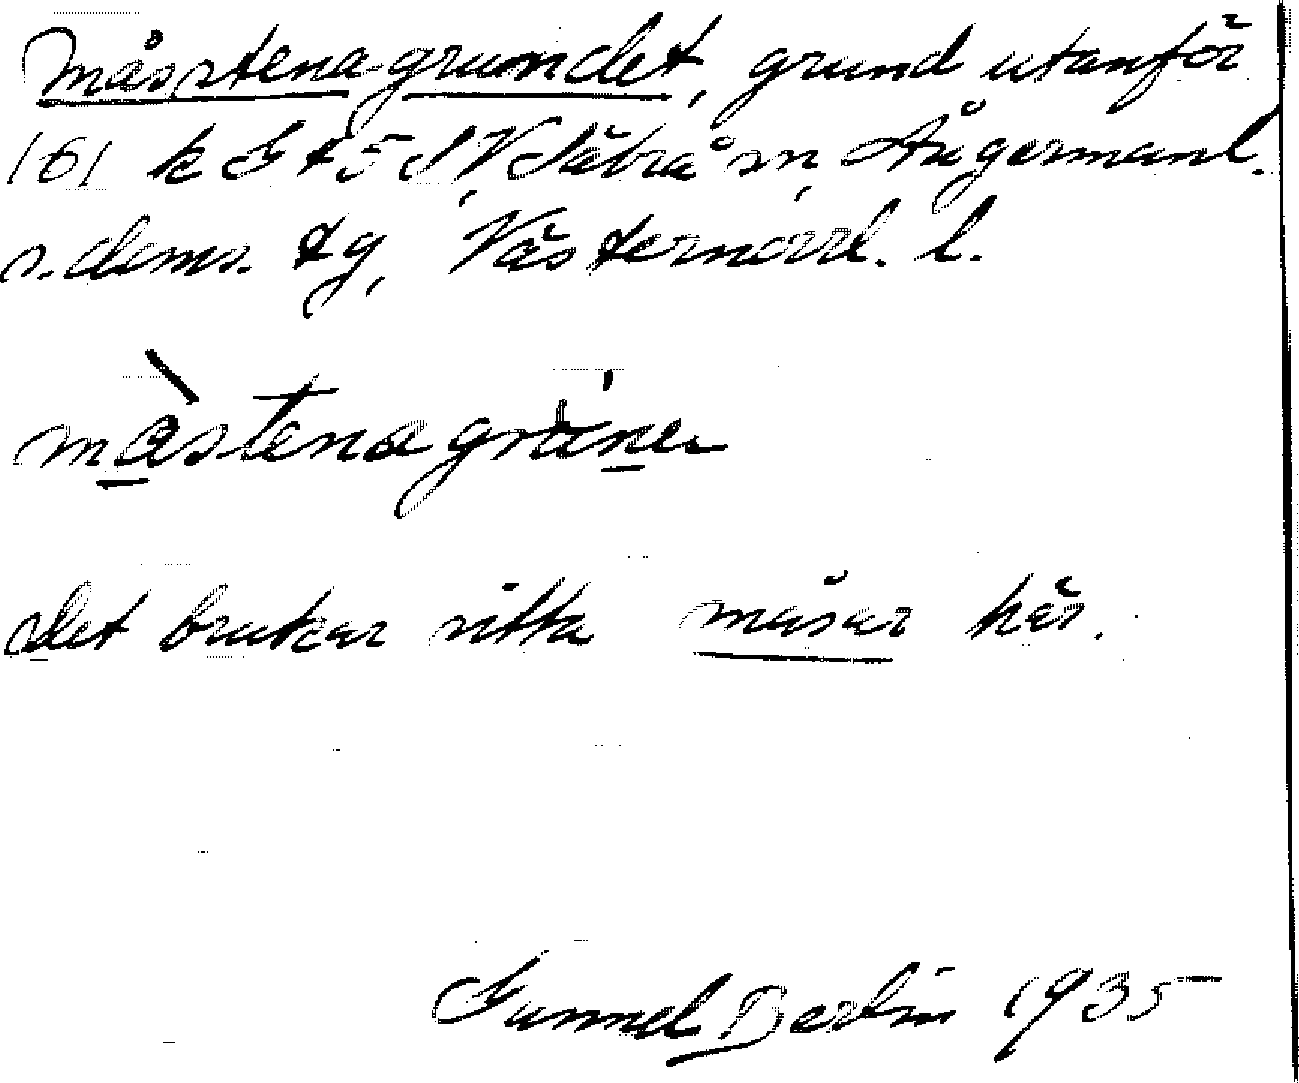 Måsstena-grundet, grund utanför
161 k G t 5 S, V Säbrå sn, Ångermanl.
s. doms. tg, Västernorrl. l.
mästenagrüner
det brukar sitta måsar här.
Gunnel Berlin 1935